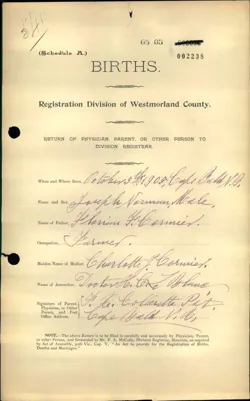 (Schedule A.)
05 05
002235
BIRTHS.
Registration Division of Westmorland County.
RETURN OF PHYSICIAN, PARENT, OR OTHER PERSON TO
DIVISION REGISTRAR.
When and Where Born, October 3 1905, Cape Bald N.B.
Name and Sex, Joseph Norman Male
Name of Father, F. Cormier
Occupation, Farmer
Maiden Name of Mother, Charlotte Cormier
Name of Accoucheur, Doctor
Signature of Parent,
Physician, or Other
Person, and Post
Office Address.
Cape Bald N.B.
NOTE. The above Return is to be filled in carefully and accurately by Physician, Parent,
or other Person, and forwarded to Mr. F. A. McCully, Division Registrar, Moncton, as required
by Act of Assembly, 50th Vic., Cap. V. "An Act to provide for the Registration of Births,
Deaths and Marriages."